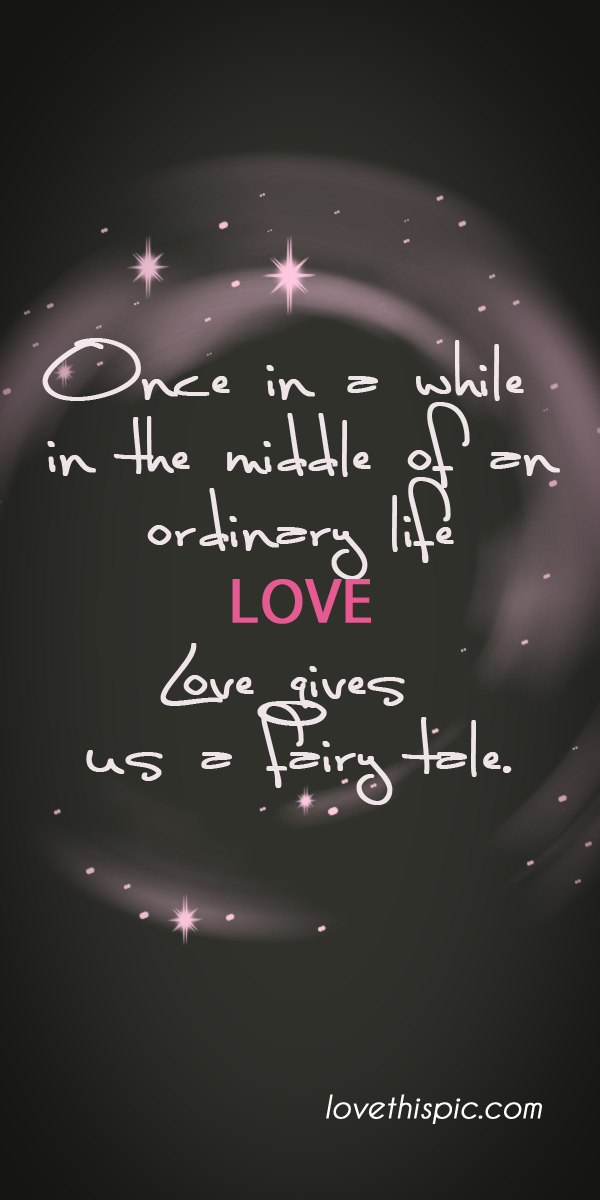 Once in a while
in the middle of an
ordinary life
LOVE
Love gives
us a fairy tale.
lovethispic.com